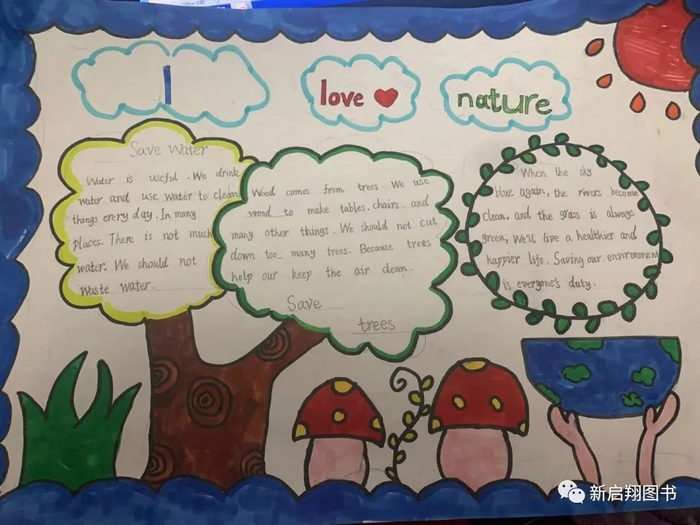 I
love
nature
Save Water
Water is useful. We drink
water and use water to clean
things every day. In many
places. There is not much
water. We should not
waste water.
Wood comes from trees. We use
wood to make tables, chairs and
many other things. We should not cut
down too many trees. Because trees
help our keep the air clean.
Save
trees
When the sky
blue again, the rivers become
clean, and the grass is always
green, We'll live a healthier and
happier life. Saving our environment
is everyone's duty.
新启翔图书